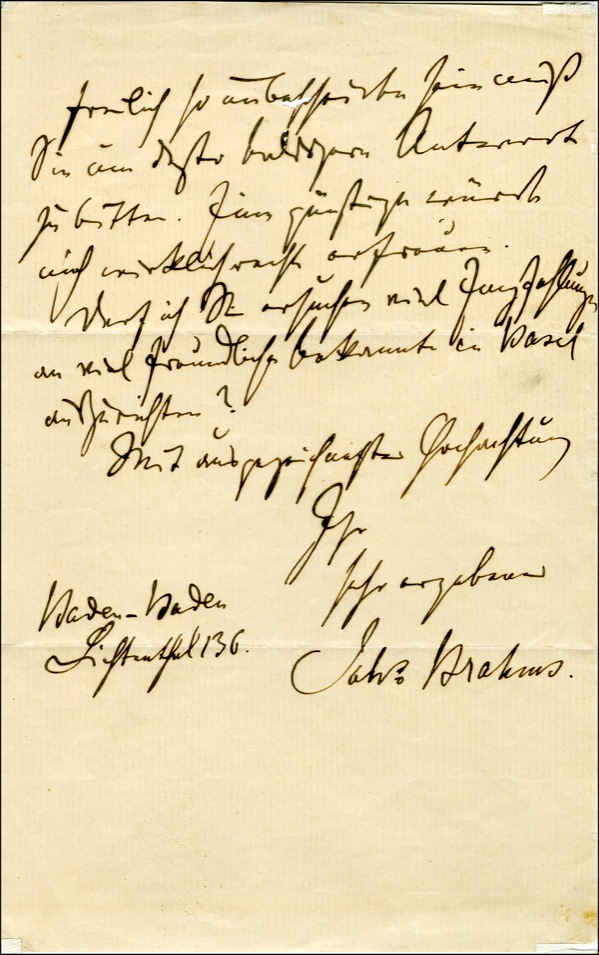 freilich so unbescheiden sein muß
Sie um desto baldigere Antwort
zu bitten. Eine günstige würde
mich wirklich recht erfreuen.
Darf ich Sie ersuchen viel Empfehlungen
an viel freundliche Bekannte in Basel
auszurichten?
Mit ausgezeichneter Hochachtung
Ihr
sehr ergebener
Johs Brahms.
Baden-Baden
Lichtenthal 136.